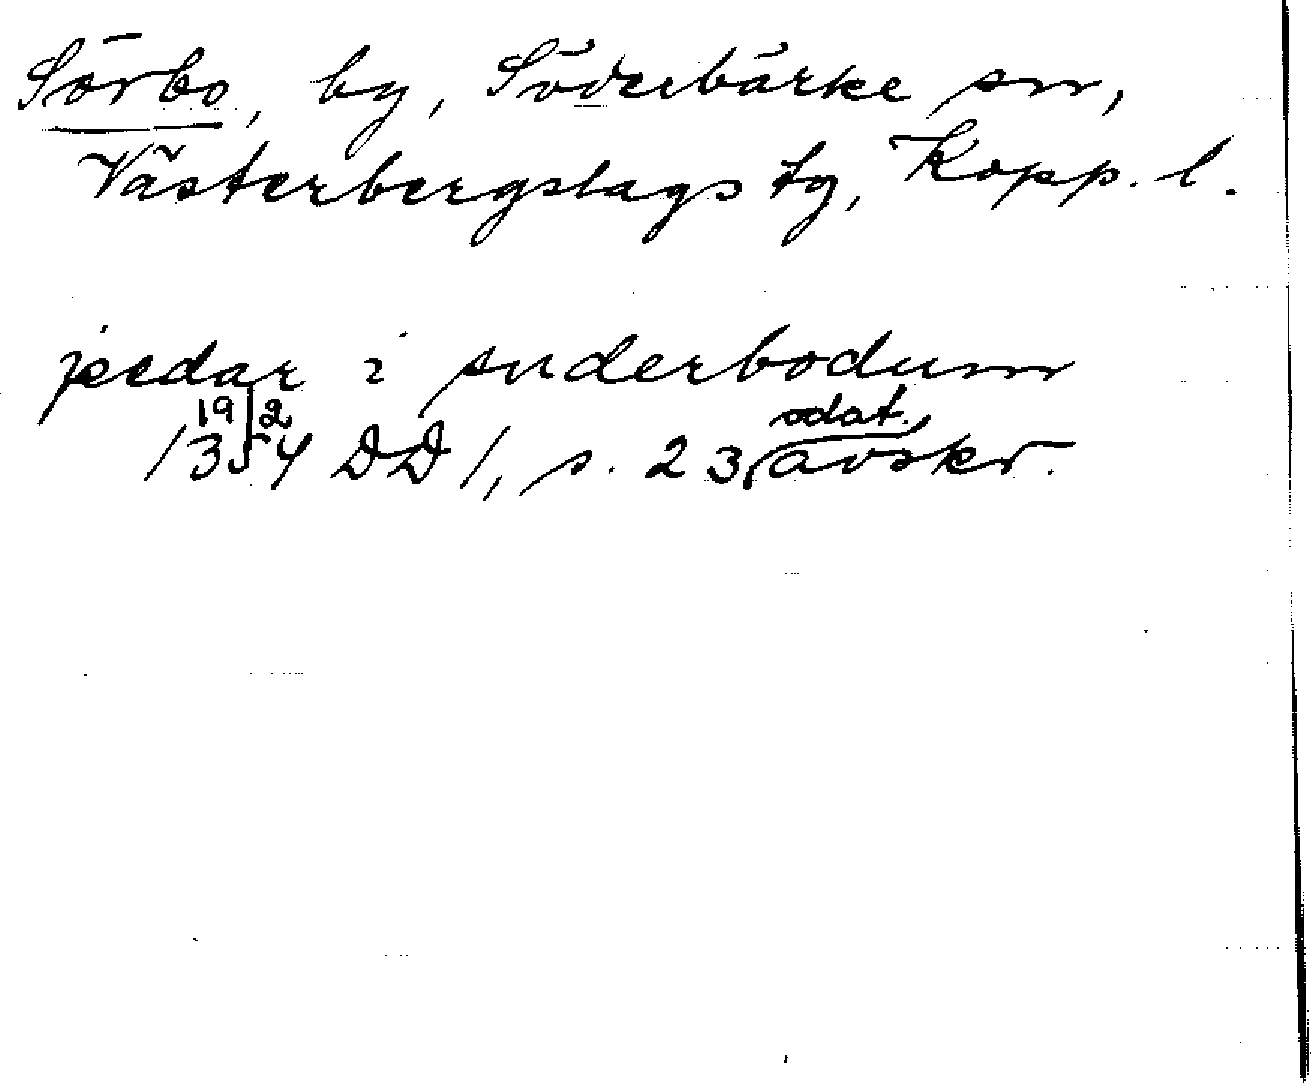 Sörbo, by, Söderbärke sn,
Västerbergslags tg, Kopp. l.
pædar i suderbodum
19/2 odat.
1354 DD 1, s. 23, avskr.